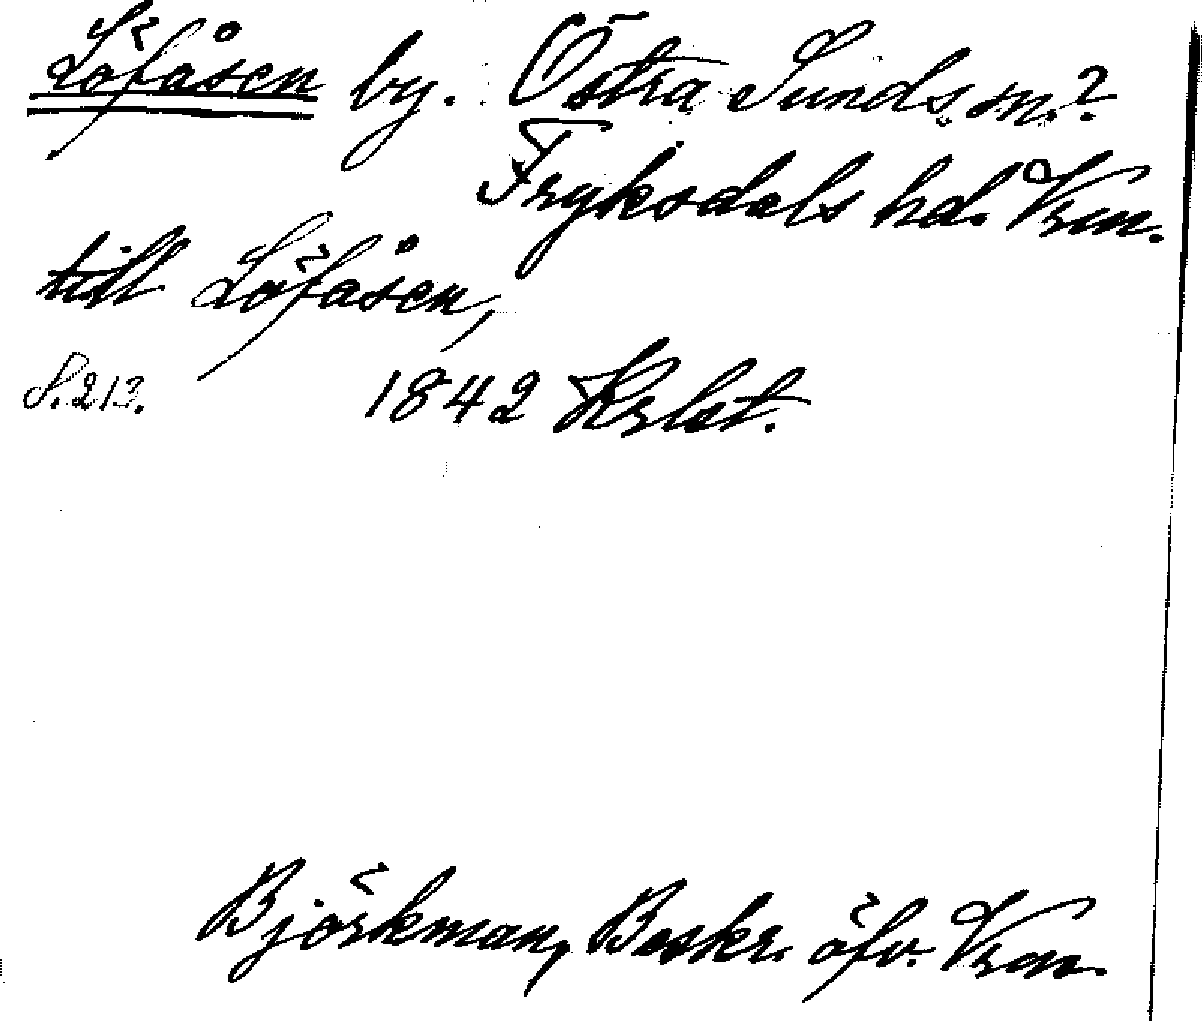 Löfåsen by. Östra Sunds sn.?
Fryksdals hd. Vrm.
till Löfåsen,
S. 212. 1842 Krlst.
Björkman, Beskr. öfv. Vrm.